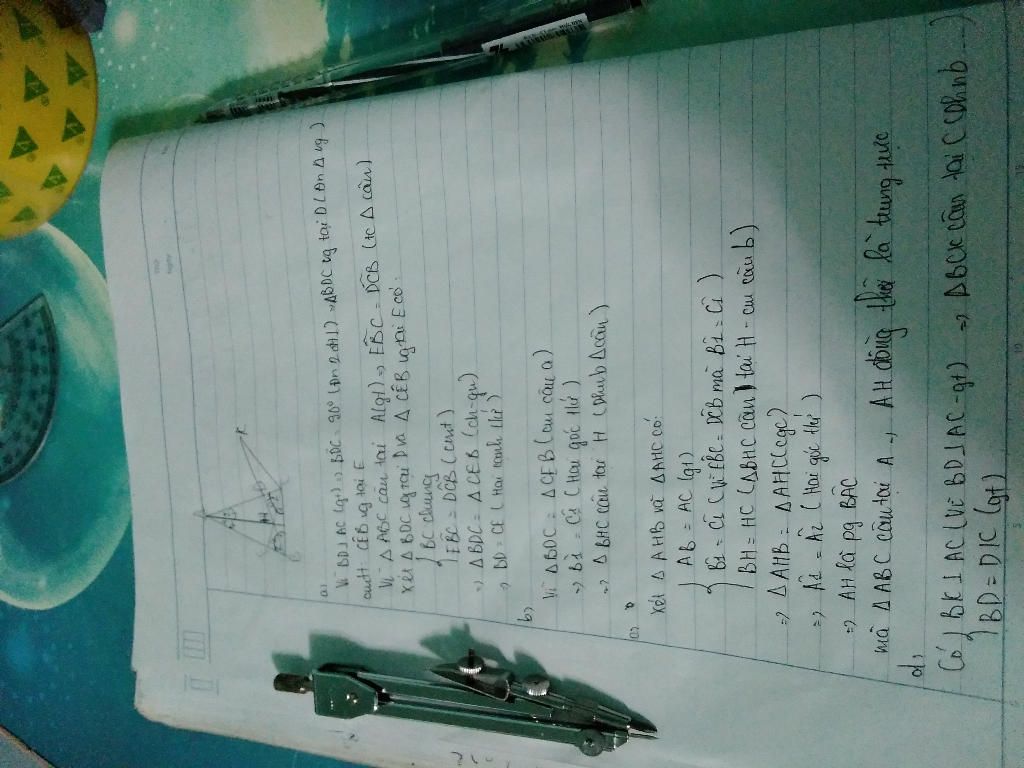 a)
Vì BD⊥AC (gt) => BDC = 90° (đn 2 đt⊥) => ΔBDC vg tại D (đn Δ vg)
cmtt CEB vg tại E
Vì Δ ABC cân tại A (gt) => EBC = DCB (tc Δ cân)
Xét Δ BDC vg tại D và Δ CEB vg tại E có:
BC chung
EBC = DCB (cmt)
=> ΔBDC = Δ CEB (ch-gn)
=> BD = CE (Hai cạnh t/ứ)
b)
Vì ΔBDC = ΔCEB (cm câu a)
=> B1 = C1 (Hai góc t/ứ)
=> ΔBHC cân tại H (Dhnb Δ cân)
c)
Xét Δ AHB và ΔAHC có:
AB = AC (gt)
B2 = C2 (vì EBC = DCB mà B1 = C1)
BH = HC (ΔBHC cân tại H - cm câu b)
=> Δ AHB = ΔAHC (cgc)
=> A1 = A2 (Hai góc t/ứ)
=> AH là pg BAC
mà Δ ABC cân tại A => AH đồng thời là trung trực
d)
Có BK⊥AC (Vì BD⊥AC -gt)
BD = DK (gt)
=> ΔBCK cân tại C (Dhnb